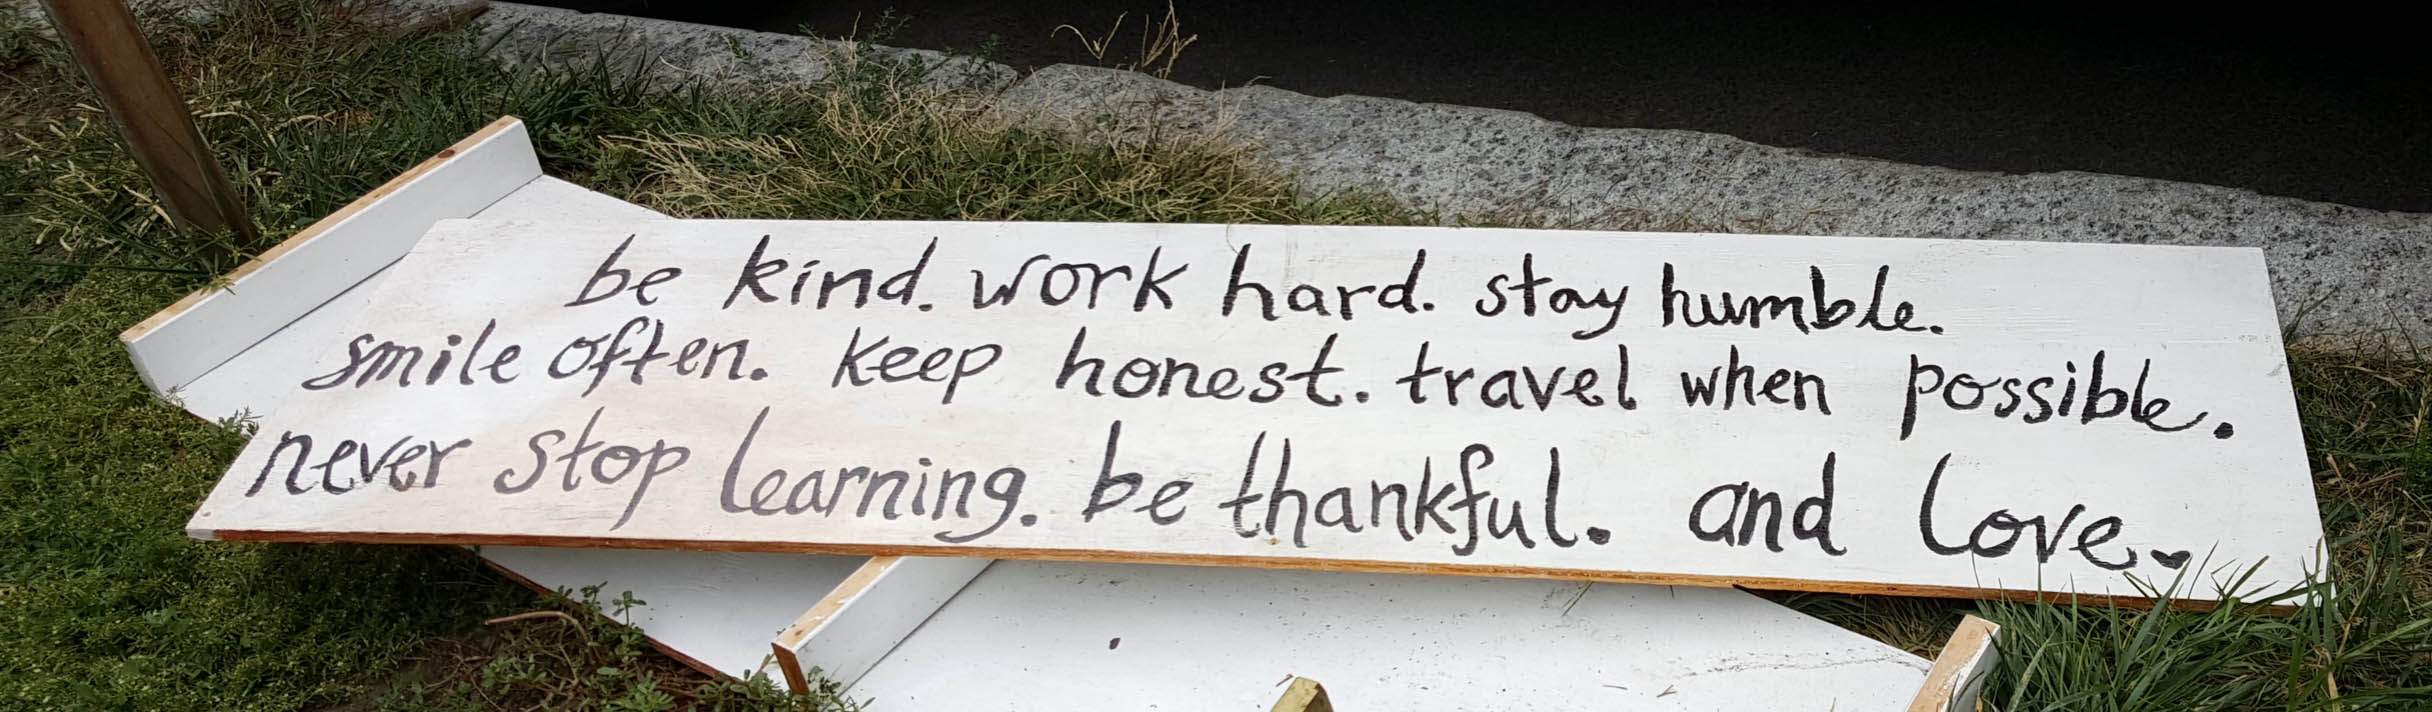 be kind. work hard. stay humble.
smile often. keep honest. travel when possible.
never stop learning. be thankful. and love.